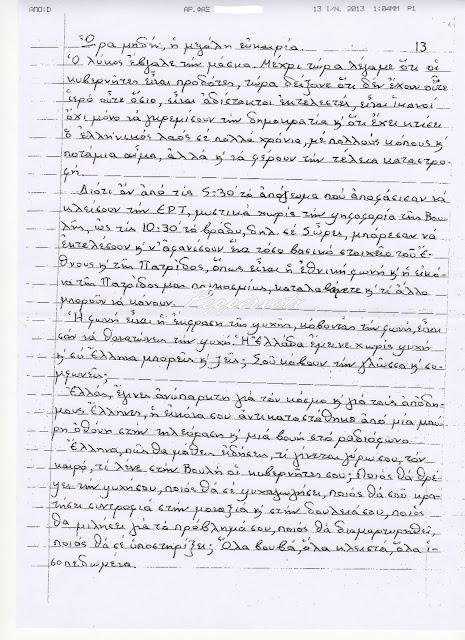 ΑΠΟ:D ΑΡ.ΦΑΞ 13 ΙΑΝ. 2013 1:04MM P1
13
Ὥρα μηδέν, ἡ μεγάλη εὐκαιρία.
Ὁ λύκος ἔβγαλε τήν μάσκα. Μέχρι τώρα λέγαμε ὅτι οἱ
κυβερνῆτες εἶναι προδότες, τώρα δείξανε ὅτι δέν ἔχουν οὔτε
ἱερό οὔτε ὅσιο, εἶναι ἀδίστακτοι ἐκτελεστές, εἶναι ἱκανοί
ὄχι μόνο νά γκρεμίσουν τήν δημοκρατία κ' ὅτι ἔχει κτίσει
ὁ ἑλληνικός λαός σέ πολλά χρόνια, μέ πολλούς κόπους κ'
ποτάμια αἷμα, ἀλλά κ' νά φέρουν τήν τέλεια καταστρο-
φή.
Διότι ἄν ἀπό τίς 5:30 τό ἀπόγευμα πού ἀποφάσισαν νά
κλείσουν τήν ΕΡΤ, μυστικά χωρίς τήν ψηφοφορία τῆς Βου-
λῆς, ὡς τίς 10:30 τό βράδυ, δηλ. σέ 5 ὧρες, μπόρεσαν νά
ἐκτελέσουν κ' ν' ἀφανίσουν ἕνα τόσο βασικό στοιχεῖο τοῦ Ἔ-
θνους κ' τῆς Πατρίδος, ὅπως εἶναι ἡ ἐθνική φωνή κ' ἡ εἰκό-
να τῆς Πατρίδος μας παγκοσμίως, καταλαβαίνετε κ' τί ἄλλο
μποροῦν νά κάνουν.
Ἡ φωνή εἶναι ἡ ἔκφραση τῆς ψυχῆς, κόβοντας τήν φωνή, εἶναι
σάν νά θανατώνεις τήν ψυχή. Ἡ Ἑλλάδα ἔμεινε χωρίς ψυχή
κ' ἐσύ Ἕλληνα μπορεῖς κ' ζεῖς; Σοῦ κόβουν τήν γλῶσσα κ' σω-
παίνεις;
Ἑλλάς, ἔγινες ἀνύπαρκτη γιά τόν κόσμο κ' γιά τούς ἀπόδη-
μους Ἕλληνες, ἡ εἰκόνα σου ἀντικαταστάθηκε ἀπό μια μαύ-
ρη ὀθόνη στήν τηλεόραση κ' μιά βουή στό ραδιόφωνο.
Ἕλληνα, πῶς θά μάθεις εἰδήσεις, τί γίνεται γύρω σου, τόν
καιρό, τί λένε στήν Βουλή οἱ κυβερνῆτες σου; Ποιός θά θρέ-
ψει τήν ψυχή σου, ποιός θά σέ ψυχαγωγήσει, ποιός θά σοῦ κρα-
τήσει συντροφιά στήν μοναξιά κ' στήν δουλειά σου, ποιός
θά μιλήσει γιά τό πρόβλημά σου, ποιός θά διαμαρτυρηθεῖ,
ποιός θά σέ ὑποστηρίξει; Ὅλα βουβά, ὅλα κλειστά, ὅλα ἰ-
σοπεδωμένα.